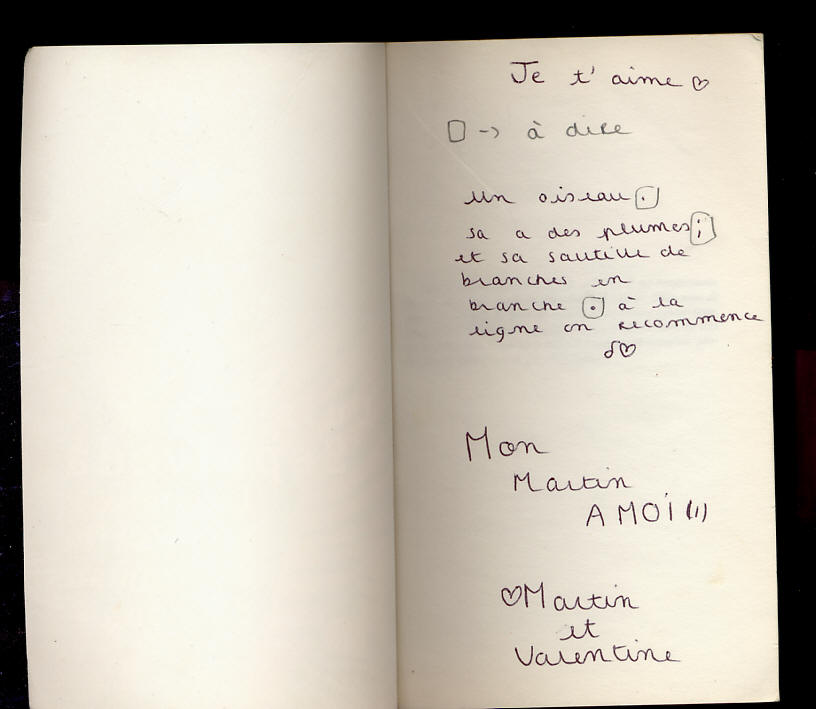 Je t'aime ♡
□ -> à dire
un oiseau .
sa a des plumes ;
et sa sautille de
branches en
branche . à la
ligne on recommence
♡
Mon
Martin
A MOI (!)
♡ Martin
et
Valentine